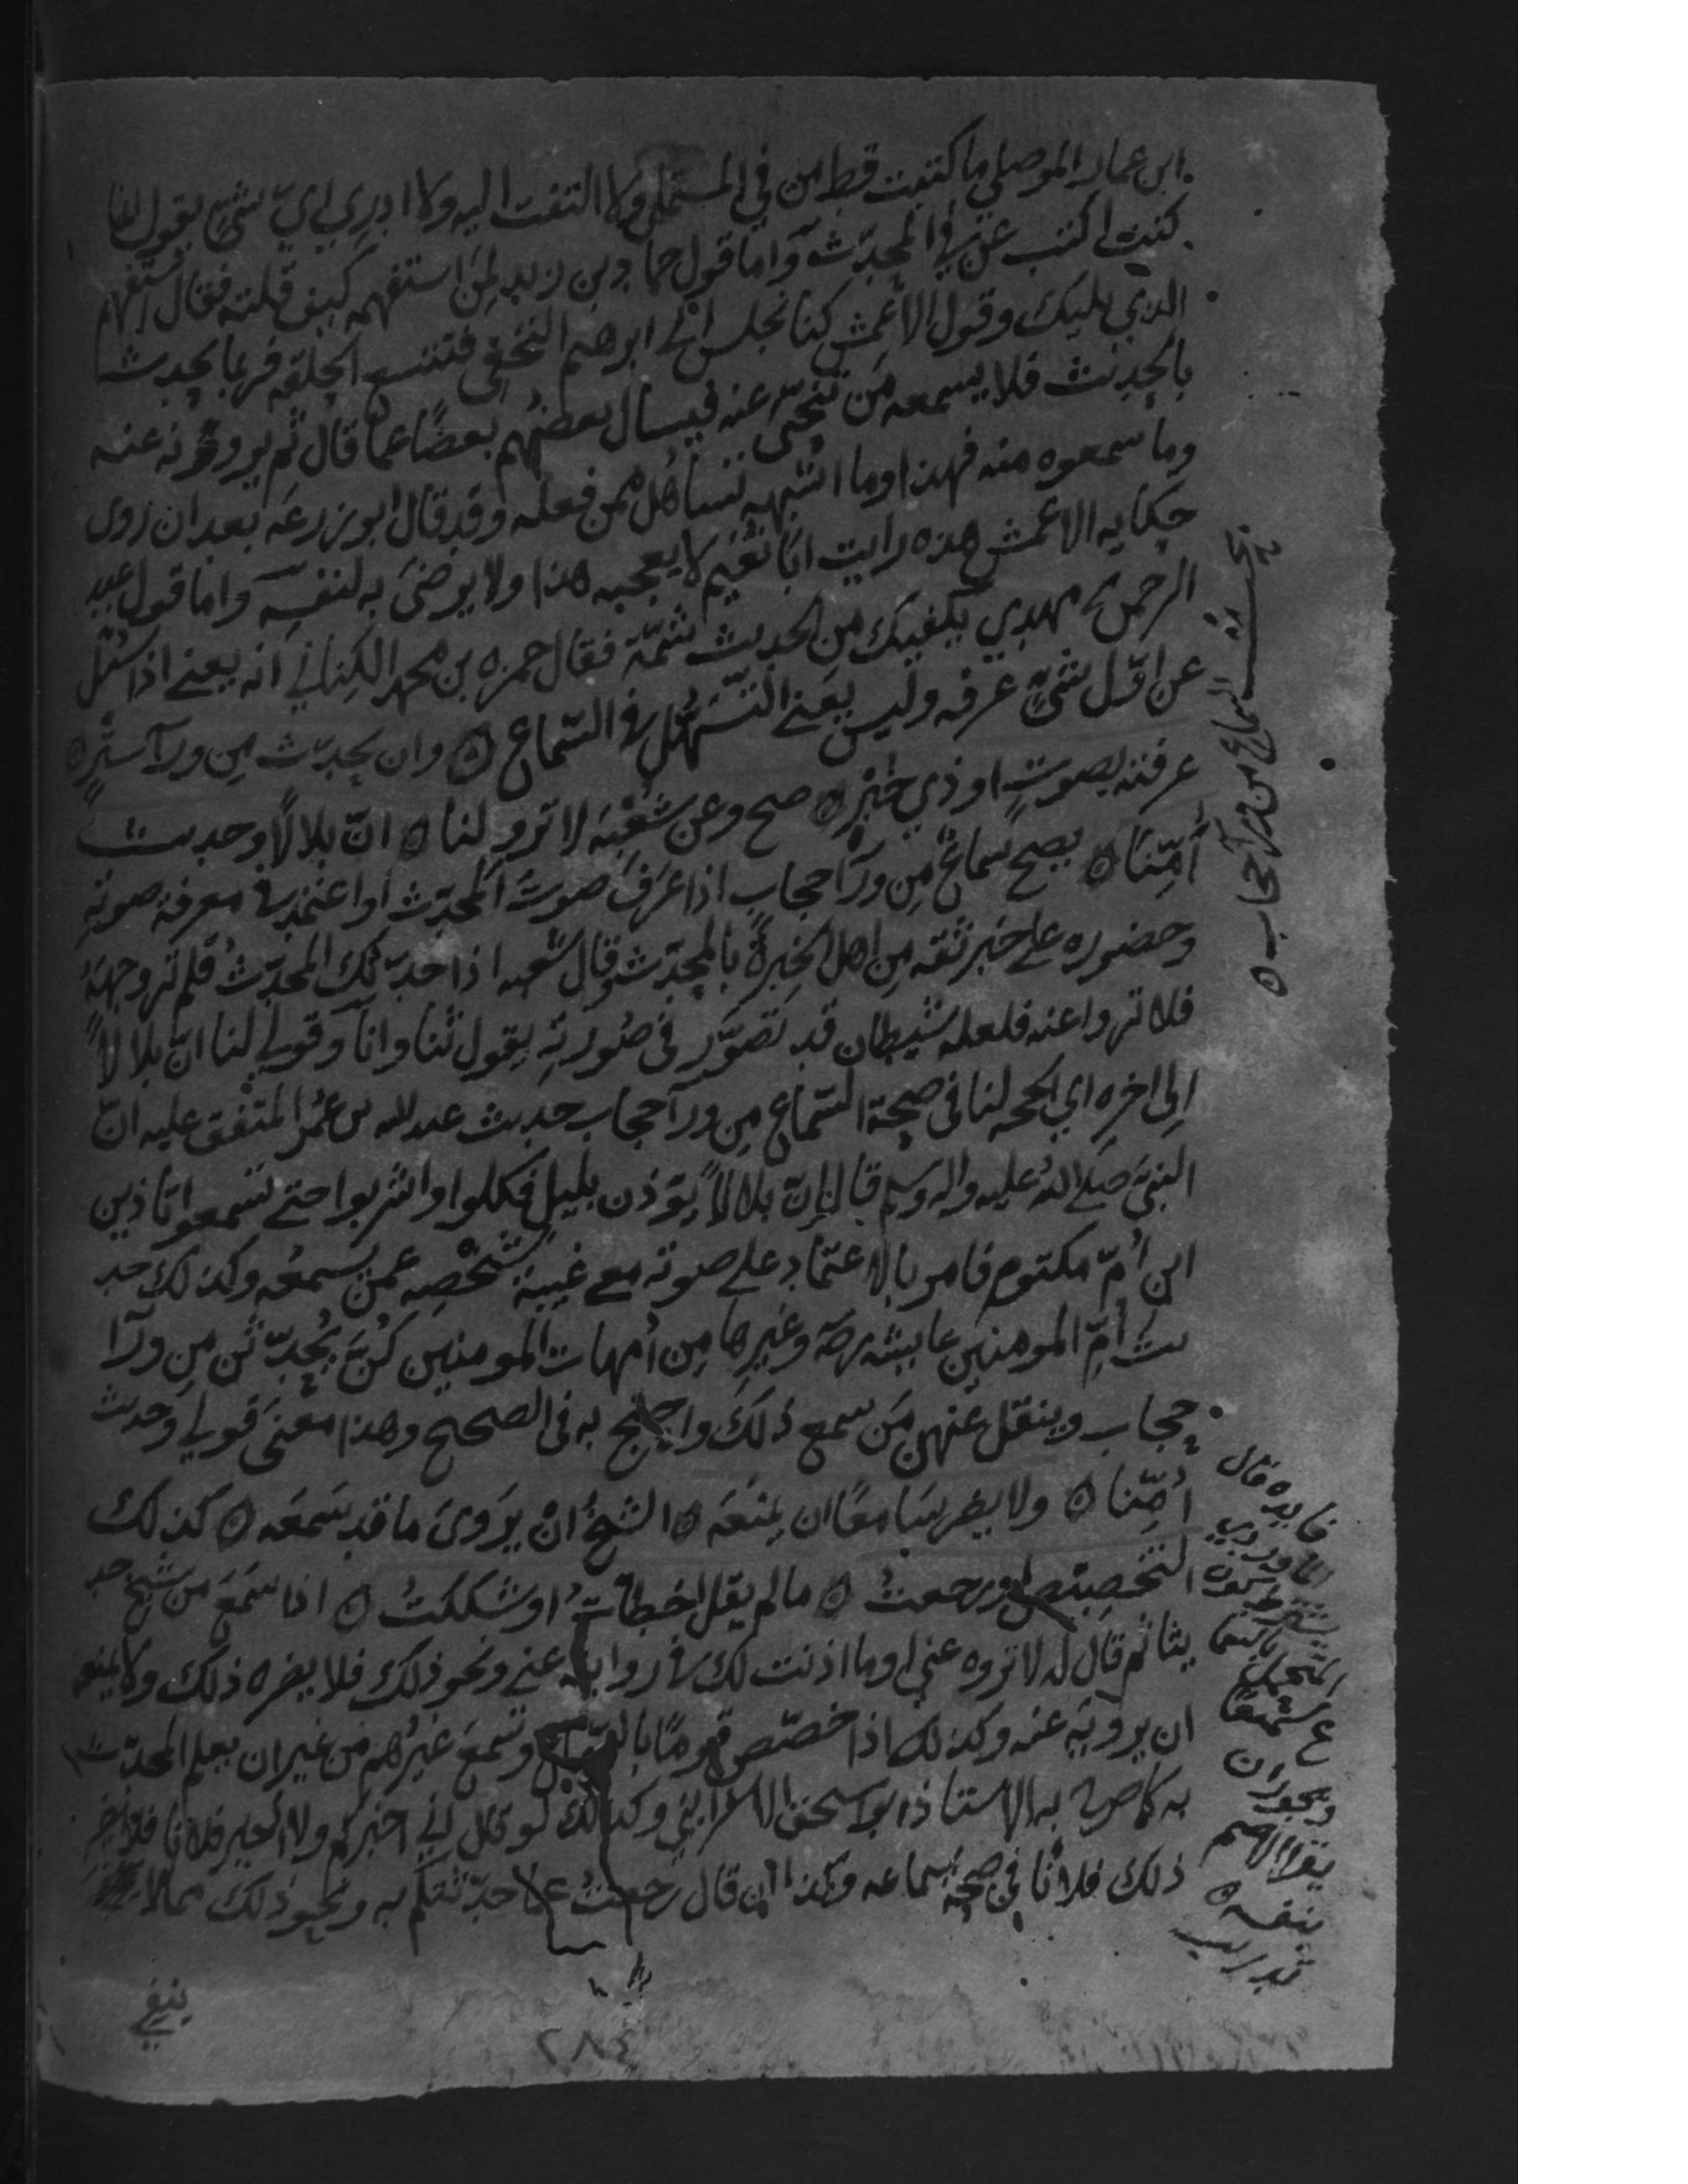 ابن عمار الموصلي ما كتبت قط من في المستملي ولا التفت اليه ولا ادري اي شيء يقول انما
كنت اكتب عن في المحدث واما قول حماد بن زيد لمن استفهمه كيف قلته فقال استفهم
الذي يليك وقول الاعمش كنا نجلس الى ابرهيم النخعي فتتسع الحلقة فربما يحدث
بالحديث فلا يسمعه من تنحى عنه فيسأل بعضهم بعضا عما قال ثم يروونه عنه
وما سمعوه منه فهذا وما اشبهه تساهل ممن فعله وقد قال ابو زرعه بعد ان روى
حكايه الاعمش هذه رايت ابا نعيم لا يعجبه هذا ولا يرضى به لنفسه واما قول عبد
الرحمن بن مهدي يكفيك من الحديث شمّة فقال حمزه بن محمد الكناني انه يعني اذا سئل
عن اوّل شيء عرفه وليس يعني التسهّل في السماع ه وان يحدث من ورآ ستر ه
عرفته بصوت او ذي خبر ه صح وعن شعبة لا ترو لنا ه انّ بلالا وحديث
أمّنا ه يصح سماع من ورآ حجاب اذا عرف صوت المحدث او اعتمد في معرفة صوته
وحضوره على خبر ثقه من اهل الخبرة بالمحدث وقال شعبه اذا حدثك المحدث فلم تر وجهه
فلا ترو عنه فلعله شيطان قد تصوّر في صورته يقول ثنا وانا وقولي لنا انّ بلالا
الى اخره اي الحجه لنا في صحة السماع من ورآ حجاب حديث عبد الله بن عمر المتفق عليه انّ
النبي صلى الله عليه واله وسلم قال إنّ بلالا يؤذن بليل فكلوا واشربوا حتى تسمعوا تاذين
ابن أمّ مكتوم فامر بالاعتماد على صوته مع غيبة شخصه عمن يسمعه وكذلك حد
يث أمّ المومنين عايشه رضه وغيرها من أمهات المومنين كنّ يحدّثن من ورآ
حجاب وينقل عنهن من سمع ذلك واحتج به في الصحيح وهذا معنى قولي وحديث
أمّنا ه ولا يضر سامعا ان يمنعه ه الشيخ ان يروى ما قد سمعه ه كذلك
التخصيص او رجعت ه ما لم يقل اخطات او شككت ه اذا سمع من شيخ حد
يثا ثم قال له لا تروه عني او ما اذنت لك في روايته عني ونحو ذلك فلا يضره ذلك ولا يمنعه
ان يرويه عنه وكذلك اذا خصّص قوما بالسماع وسمع غيرهم من غير ان يعلم المحدث
به كما صرح به الاستاذ ابو اسحق الاسفرايني وكذلك لو قال اني اخبركم ولا اخبر فلانا فلا يضر
ذلك فلانا في صحة سماعه وكذا ان قال رجعت عما حدثتكم به ونحو ذلك مما لا
ينفي
السماع من ورآ حجاب ه
فايده قال
الماوردي
يشترط
المتحمل
ويجوز ان
يقرا الاصم
بنفسه ه
تدريب
٢٨٤